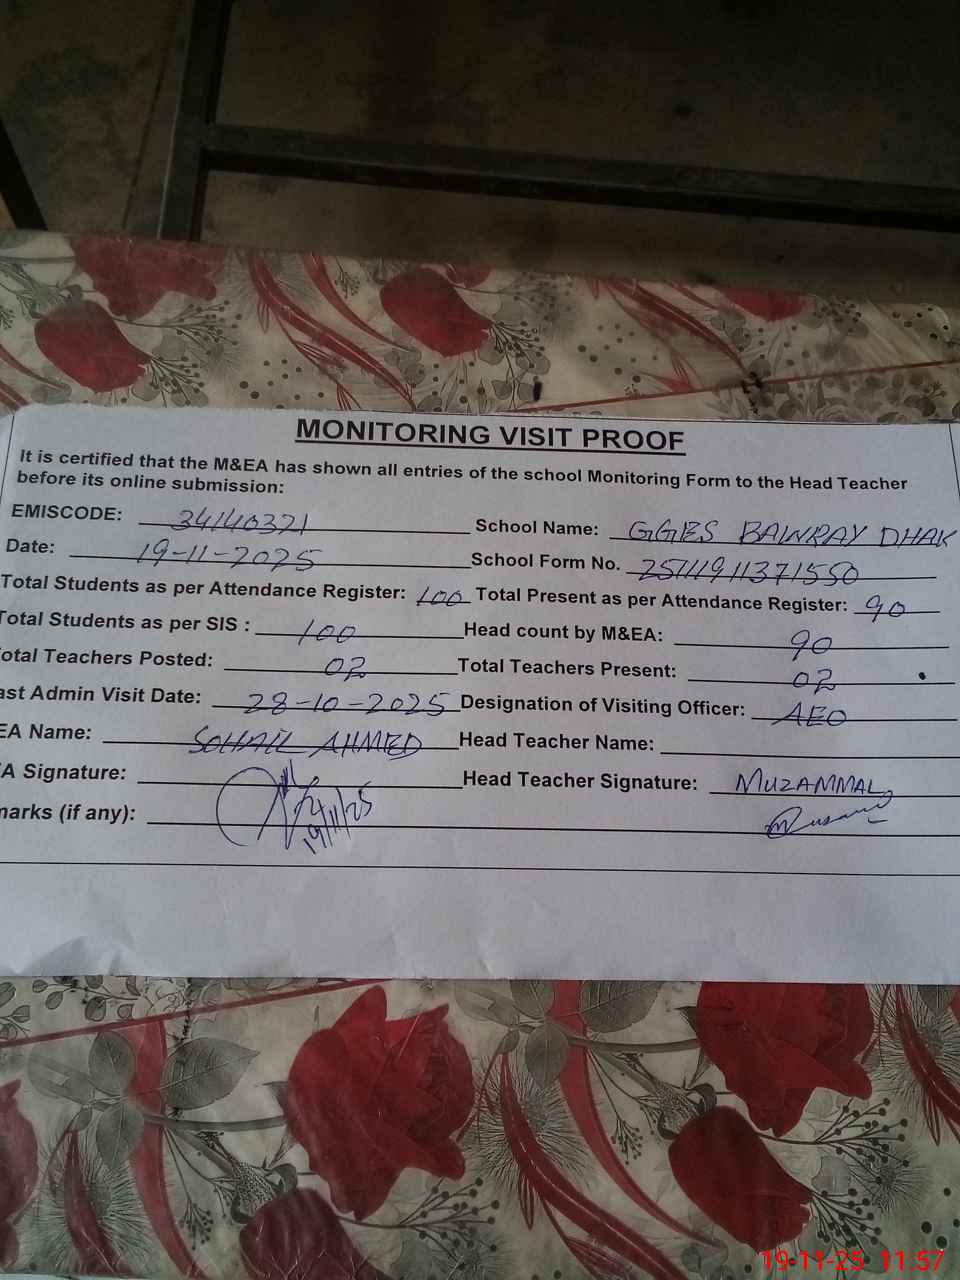 MONITORING VISIT PROOF
It is certified that the M&EA has shown all entries of the school Monitoring Form to the Head Teacher
before its online submission:
EMISCODE: 34140321 School Name: GGES BAINRAY DHAK
Date: 19-11-2025 School Form No. 25111911371550
Total Students as per Attendance Register: 100 Total Present as per Attendance Register: 90
Total Students as per SIS : 100 Head count by M&EA: 90
otal Teachers Posted: 02 Total Teachers Present: 02
ast Admin Visit Date: 28-10-2025 Designation of Visiting Officer: AEO
EA Name: SOHAIL AHMED Head Teacher Name:
A Signature: Head Teacher Signature: MUZAMMAL
19/11/25
marks (if any):
19-11-25 11:57